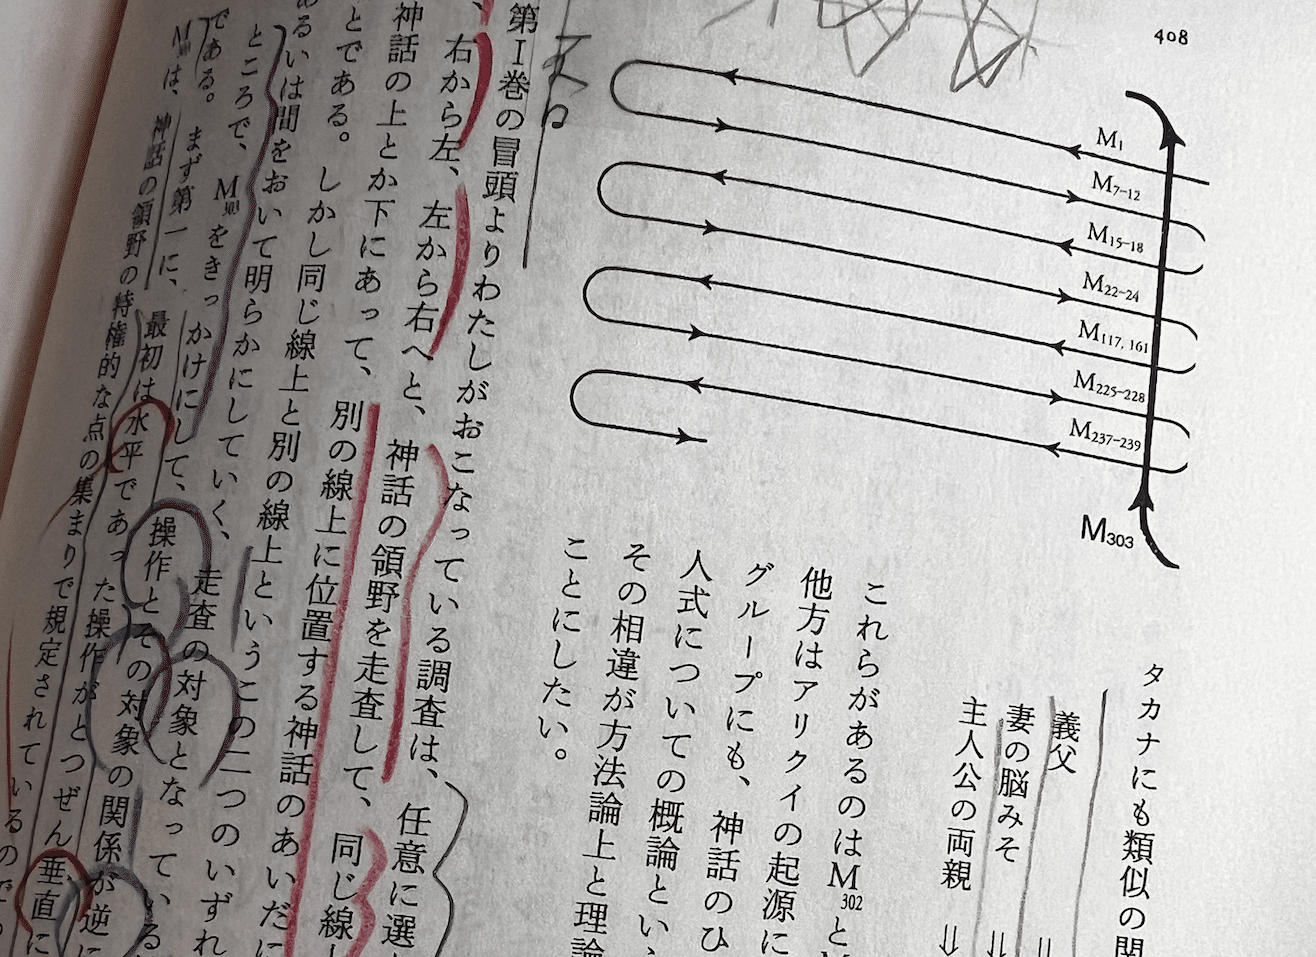 408
M1
M7–12
M15–18
M22–24
M117, 161
M225–228
M237–239
M303
タカナにも類似の関
義父
妻の脳みそ
主人公の両親
これらがあるのはM302と
他方はアリクイの起源に
グループにも、神話のひ
人式についての概論とい
その相違が方法論上と理論
ことにしたい。
第Ⅰ巻の冒頭よりわたしがおこなっている調査は、任意に選
右から左、左から右へと、神話の領野を走査して、同じ線
神話の上とか下にあって、別の線上に位置する神話のあいだに
とである。しかし同じ線上と別の線上というこの二つのいずれ
るいは間をおいて明らかにしていく、走査の対象となっている
ところで、M303をきっかけにして、操作とその対象の関係が逆に
である。まず第一に、最初は水平であった操作がとつぜん垂直に
は、神話の領野の特権的な点の集まりで規定されているので